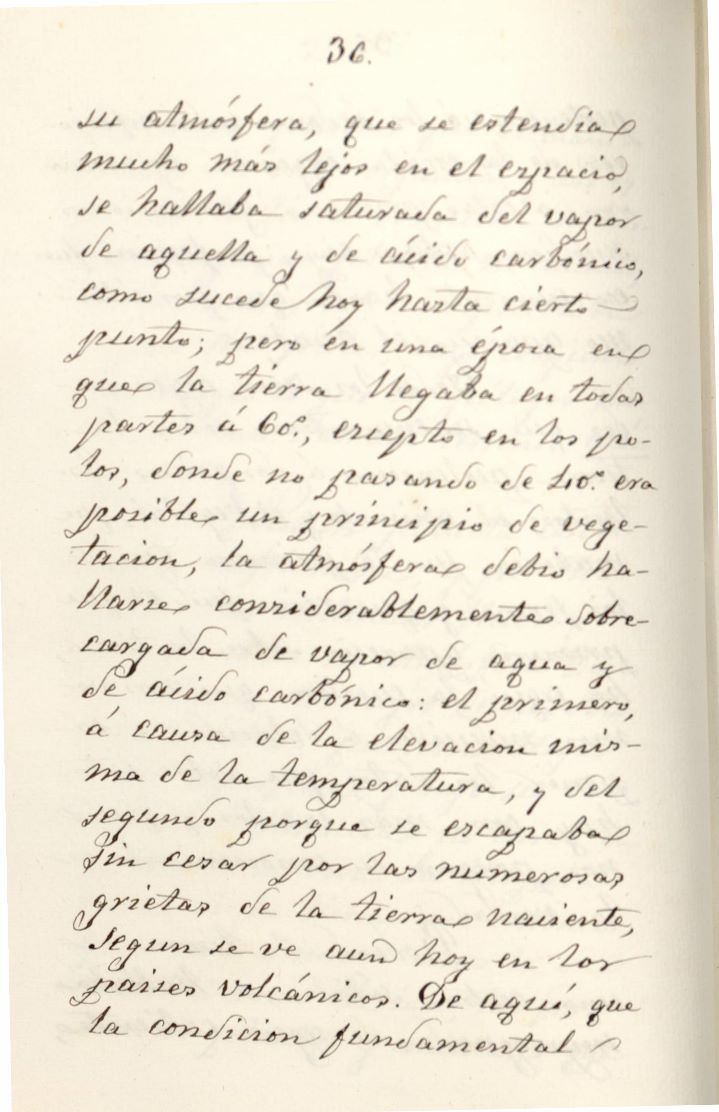 36.
su atmósfera, que se estendia
mucho más lejos en el espacio,
se hallaba saturada del vapor
de aquella y de ácido carbónico,
como sucede hoy hasta cierto
punto; pero en una época en
que la tierra llegaba en todas
partes á 60º, escepto en los po-
los, donde no pasando de 40º era
posible un principio de vege-
tacion, la atmósfera debio ha-
llarse considerablemente sobre-
cargada de vapor de agua y
de ácido carbónico: el primero,
á causa de la elevacion mis-
ma de la temperatura, y del
segundo porque se escapaba
sin cesar por las numerosas
grietas de la tierra naciente,
segun se ve aun hoy en los
paises volcánicos. De aquí, que
la condicion fundamental